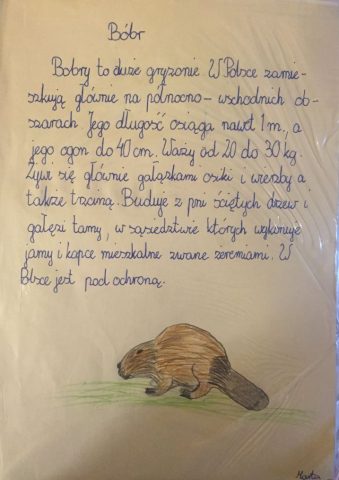 Bóbr
Bobry to duże gryzonie. W Polsce zamie-
szkują głównie na północno-wschodnich ob-
szarach. Jego długość osiąga nawet 1m., a
jego ogon do 40 cm. Waży od 20 do 30 kg.
Żywi się głównie gałązkami osiki i wierzby a
także trzciną. Buduje z pni ściętych drzew i
gałęzi tamy, w sąsiedztwie których wykonuje
jamy i kopce mieszkalne zwane żeremiami. W
Polsce jest pod ochroną.